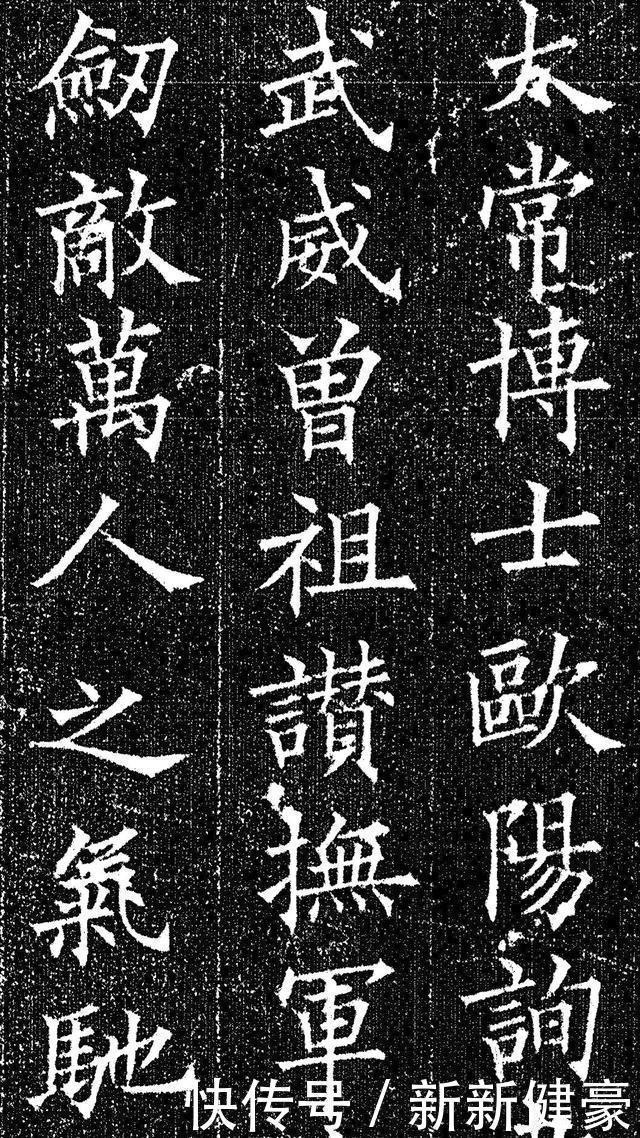 太常博士歐陽詢
武威曾祖讃撫軍
劒敵萬人之氣馳
快传号 / 新新健豪